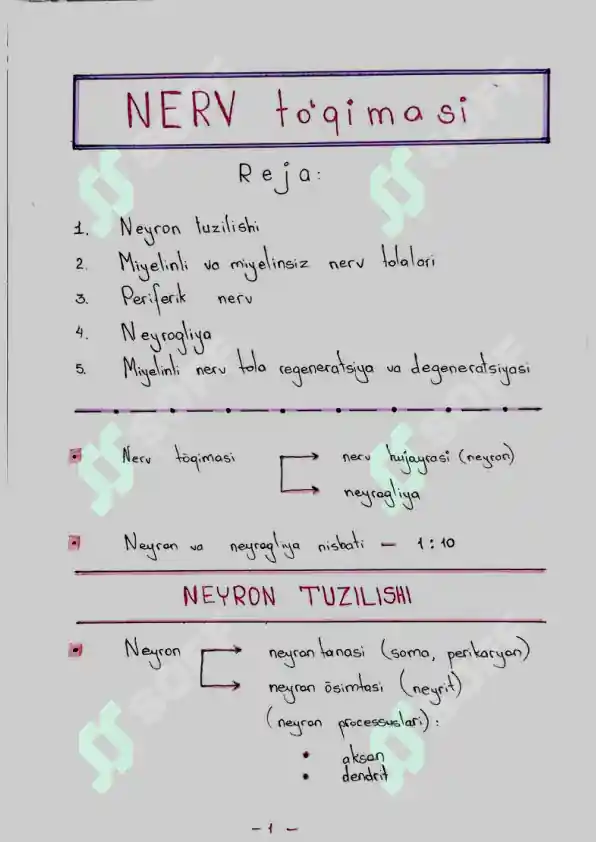 NERV to'qimasi
Reja:
1. Neyron tuzilishi
2. Miyelinli va miyelinsiz nerv tolalari
3. Periferik nerv
4. Neyrogliya
5. Miyelinli nerv tola regeneratsiya va degeneratsiyasi
Nerv tōqimasi → nerv hujayrasi (neyron)
→ neyrogliya
Neyron va neyrogliya nisbati — 1:10
NEYRON TUZILISHI
Neyron → neyron tanasi (soma, perikaryon)
→ neyron ōsimtasi (neyrit)
(neyron processuslari):
• akson
• dendrit
- 1 -